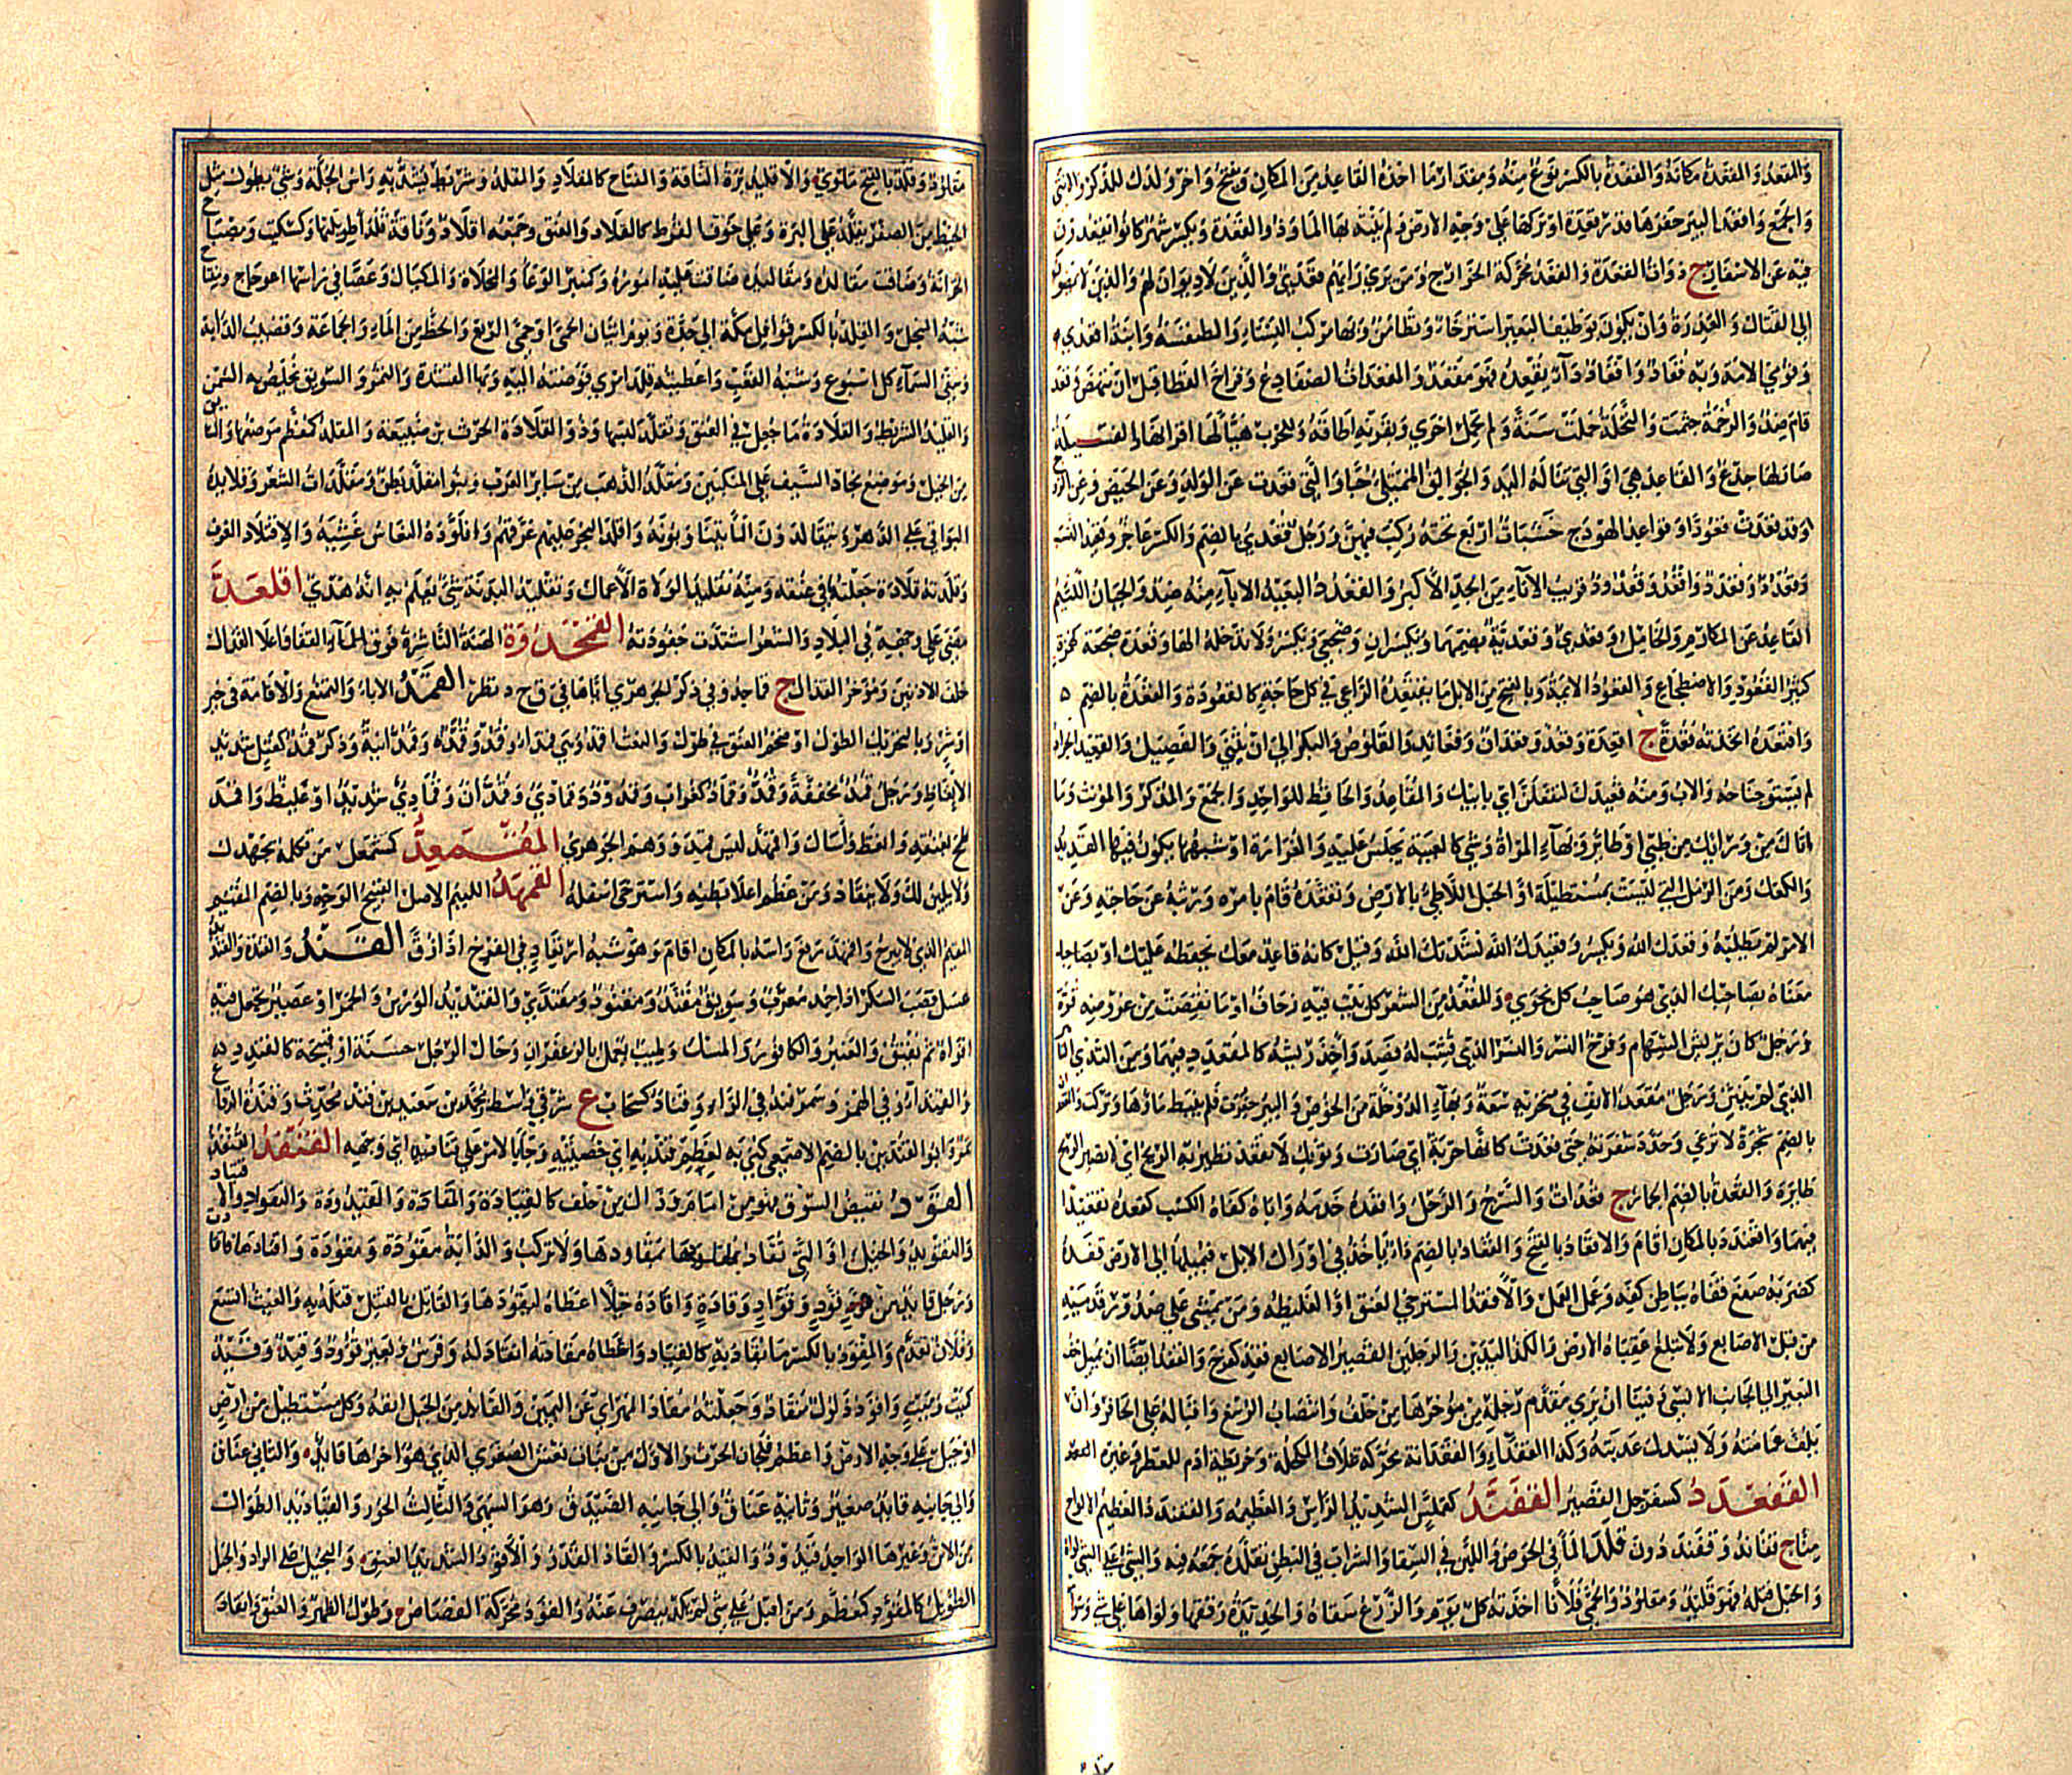 والمقعد والمقعدة مكانه والقعدة بالكسر نوع منه ومقدار ما اخذه القاعد من المكان ويفتح واخر ولدك للذكر والانثى
والجمع واقعد البير حفرها قدر قعدة او تركها على وجه الارض ولم ينته بها الما وذو القعدة ويكسر شهر كانوا يقعدون
فيه عن الاسفار ج ذوات القعدة والقعد محركة الخوارج ومن يرى رايهم قعدي والذين لا ديوان لهم والذين لا يمضون
الى القتال والعذرة وان يكون بوظيف البعير استرخاء وتطامن وبهاء مركب للنساء والطنفسة وابنة اقعدي
وقومي الامة وبه قعاد واقعاد داء يقعده فهو مقعد والمقعدات الضفادع وفراخ القطا قبل ان تنهض وقعد
قام ضد والرخمة جثمت والنخلة حملت سنة ولم تحمل اخرى وبقرنه اطاقه وللحرب هيأ لها اقرانها والفسيلة
صار لها جذع والقاعد هي او التي تنالها اليد والجوالق الممتلئ حبا والتي قعدت عن الولد وعن الحيض وعن الزوج
وقد قعدت قعودا وقواعد الهودج خشبات اربع تحته ركب فيهن ورجل قعدي بالضم والكسر عاجز وقعيد النسب
وقعدد وقعدد واقعد وقعدود قريب الاباء من الجد الاكبر والقعدد البعيد الاباء منه ضد والجبان اللئيم
القاعد عن المكارم والخامل وقعدي وقعدية بضمهما ويكسران وضجعي ويكسر ولا تدخله الها وقعدة ضجعة كهمزة
كثير القعود والاضطجاع والقعود الايمة وبالفتح من الابل ما يقتعده الراعي في كل حاجة كالقعودة والقعدة بالضم
واقتعده اتخذه قعدة ج اقعدة وقعد وقعدان وقعائد والقلوص والبكر الى ان يثني والفصيل والقعيد الجراد
لم يستو جناحه والاب ومنه قعيدك لتفعلن اي بابيك والمقاعد والحافظ للواحد والجمع والمذكر والمونث وما
اتاك من ورائك من ظبي او طائر وبهاء المراة وشي كالعيبة يجلس عليه والغرارة او شبهها يكون فيها القديد
والكعك ومن الرمل التي ليست بمستطيلة او الحبل اللاطئ بالارض وتقعده قام بامره وربثه عن حاجته وعن
الامر لم يطلبه وقعدك الله ويكسر وقعيدك الله نشدتك الله وقيل كانه قاعد معك بحفظه عليك او بصاحبك
معناه بصاحبك الذي هو صاحب كل نجوى والمقعد من الشعر كل بيت فيه زحاف او ما نقصت من عروضه قوة
ورجل كان يريش السهام وفرخ النسر والنسر الذي قشب له فصيد واخذ ريشه كالمقعدد فيهما ومن الثدي الناهد
الذي لم ينثن ورجل مقعد الانف في منخريه سعة وبهاء الدوخلة من الخوص والبير حفرت فلم ينبط ماؤها وترك والقعدان
بالضم شجرة لا ترعى وحدد شفرته حتى قعدت كانها حربة اي صارت وثوبك لا تقعد تطير به الريح اي لا تصير الريح
طائرة والقعدة بالضم الحمار ج قعدات والسرج والرحل واقعده خدمه واباه كفاه الكسب كقعده تقعيدا
فيهما واقعندد بالمكان اقام والاقعاد بالفتح والقعاد بالضم داء ياخذ في اوراك الابل فيميلها الى الارض قفده
كضربه صفع قفاه بباطن كفه وعمل العمل والاقفد المسترخي العنق او الغليظه ومن يمشي على صدور قدميه
من قبل الاصابع ولا تبلغ عقباه الارض والكز اليدين والرجلين القصير الاصابع قفد كفرح والقفد ايضا ان يميل خف
البعير الى الجانب الانسي وفينا ان يرى مقدم رجله من موخرها من خلف وانتصاب الرسغ واقباله على الحافر وان
يلف عمامته ولا يسدل عذبته وكذا القفداء والقفدانة محركة غلاف المكحلة وخريطة ادم للعطر وغيره
القفعدد كسفرجل القصير القفند كعملس الشديد الراس والعظيمه والقفندد العظيم الالواح
منا ج قفاند وقفندون قلد الما في الحوض واللبن في السقا والشراب في البطن يقلده جمعه فيه والشي على الشي لواه
والحبل فتله فهو قليد ومقلود والحمى فلانا اخذته كل يوم والزرع سقاه والحديدة رققها ولواها على شي وسوار
مقلود وقلد بالفتح ملوي والاقليد برة الناقة والمفتاح كالمقلاد والمقلد وشريط يشد به راس الجلة وشي يطول مثل
الخيط من الصفر يقلد على البرة وعلى خوق القرط كالقلاد والعنق وجمعه اقلاد وناقة قلداء طويلتها وكسكيت ومصباح
الخزانة وضاقت مقالده ومقاليده ضاقت عليه اموره وكمنبر الوعا والمخلاة والمكيال وعصا في راسها اعوجاج ومفتاح
شبه المنجل والقلد بالكسر قوافل مكة الى جدة ويوم اتيان الحمى او حمى الربع والحظ من الماء والجماعة وقضيب الدابة
وسقي السماء كل اسبوع وشبه القعب واعطيته قلد امري فوضته اليه وبهاء القشدة والتمر والسويق يخلص به السمن
والقليد الشريط والقلادة ما جعل في العنق وتقلد لبسها وذو القلادة الحرث بن ضبيعة والمقلد كمعظم موضعها والسابق
من الخيل وموضع نجاد السيف على المنكبين ومقلد الذهب من سادات العرب وبنو مقلد بطن ومقلدات الشعر وقلائده
البواقي على الدهر وتيقالدون الماء يتناوبونه واقلد البحر عليهم غرقهم واقلوده النعاس غشيه والاقتلاد الغرف
وقلدته قلادة جعلتها في عنقه ومنه تقليد الولاة الاعمال وتقليد البدنة شي يعلم به انه هدي اقلعد
مضى على وجهه في البلاد والشعر اشتدت جعودته القمحدوة الهنة الناشزة فوق القفا واعلا القذال
خلف الاذنين وموخر القذال ج قماحد وفي ذكر الجوهري اياها في ق ح د نظر القمد الاباء والتمنع والاقامة في خير
او شر وبالتحريك الطول او ضخم العنق في طول والنعت اقمد وهي قمداء وقمد وقمدة وقمدانية وذكر قمد كعتل شديد
الانعاظ ورجل قمد مخففة وقمد وقماد كغراب وقمدود وقمادي وقمدان وقمداني شديد او غليظ واقمد
طمح بعنقه وانعظ واسال واقمهد ليس قمد ووهم الجوهري المقمعد كمشمعل من تكلمه بجهدك
ولا يلين لك ولا ينقاد ومن عظم اعلا بطنه واسترخى اسفله القمهد اللئيم الاصل القبيح الوجه وبالضم المقيم
القيم الذي لا يبرح واقمهد رفع راسه بالمكان اقام وهو شبه ارتعاد في الفرخ اذا زق القند والقندة والقنديد
عسل قصب السكر اذا جمد معرب وسويق مقند ومقنود ومقندي والقنديد الورس والخمر او عصير يجعل فيه
افواه ثم يفتق والعنبر والكافور والمسك وطيب يعمل بالزعفران وحال الرجل حسنة او قبيحة كالقندد
والقنداو في الهمز وسمرقند في الراء وقناد كسحاب ع شرقي واسط ومحمد بن سعيد بن قند محدث وقندة الرقاع
تمر وابو القندين بالضم الاصمعي كني به لعظم قنديه اي خصييه وجايا لامر على قناديه اي وجهه القنفد القنفذ
القود نقيض السوق فهو من امام وذاك من خلف كالقيادة والمقادة والقيدودة والتقواد والاقتياد
والتقويد والخيل او التي تقاد بمقاودها ولا تركب والدابة مقودة ومقوودة واقتادها فاقتادت
ورجل قائد من قود وقواد وقادة واقاده خيلا اعطاه ليقودها والقاتل بالقتيل قتله به والغيث اتسع
وفلان تقدم والمقود بالكسر ما يقاد به كالقياد واعطاه مقادته انقاد له وفرس وبعير قوود وقيد وقيد
كميت وميت واقود ذلول منقاد وجعلته مقاد المهر اي عن اليمين والقائد من الجبل انفه وكل مستطيل من ارض
او جبل على وجه الارض واعظم فلجان الحرث والاول من بنات نعش الصغرى الذي هو اخرها قائد والثاني عناق
والى جانبه قائد صغير وثانيه عناق والى جانبه الصيدق وهو السهى والثالث الحور والقياديد الطوال
من الاتن وغيرها الواحد قيدود والقيد بالكسر والقاد القدر والاقود الشديد العنق والبخيل على الزاد والجبل
الطويل كالمقود كمعظم ومن اقبل على شي لم يكد يصرف عنه والقود محركة القصاص وطول الظهر والعنق وانقاد